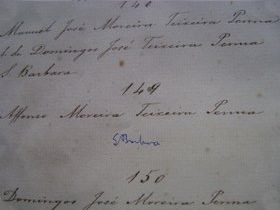 148
Manuel José Moreira Teixeira Penna
f. de Domingos José Teixeira Penna
S. Barbara
149
Affonso Moreira Teixeira Penna
S. Barbara
150
Domingos José Moreira Penna